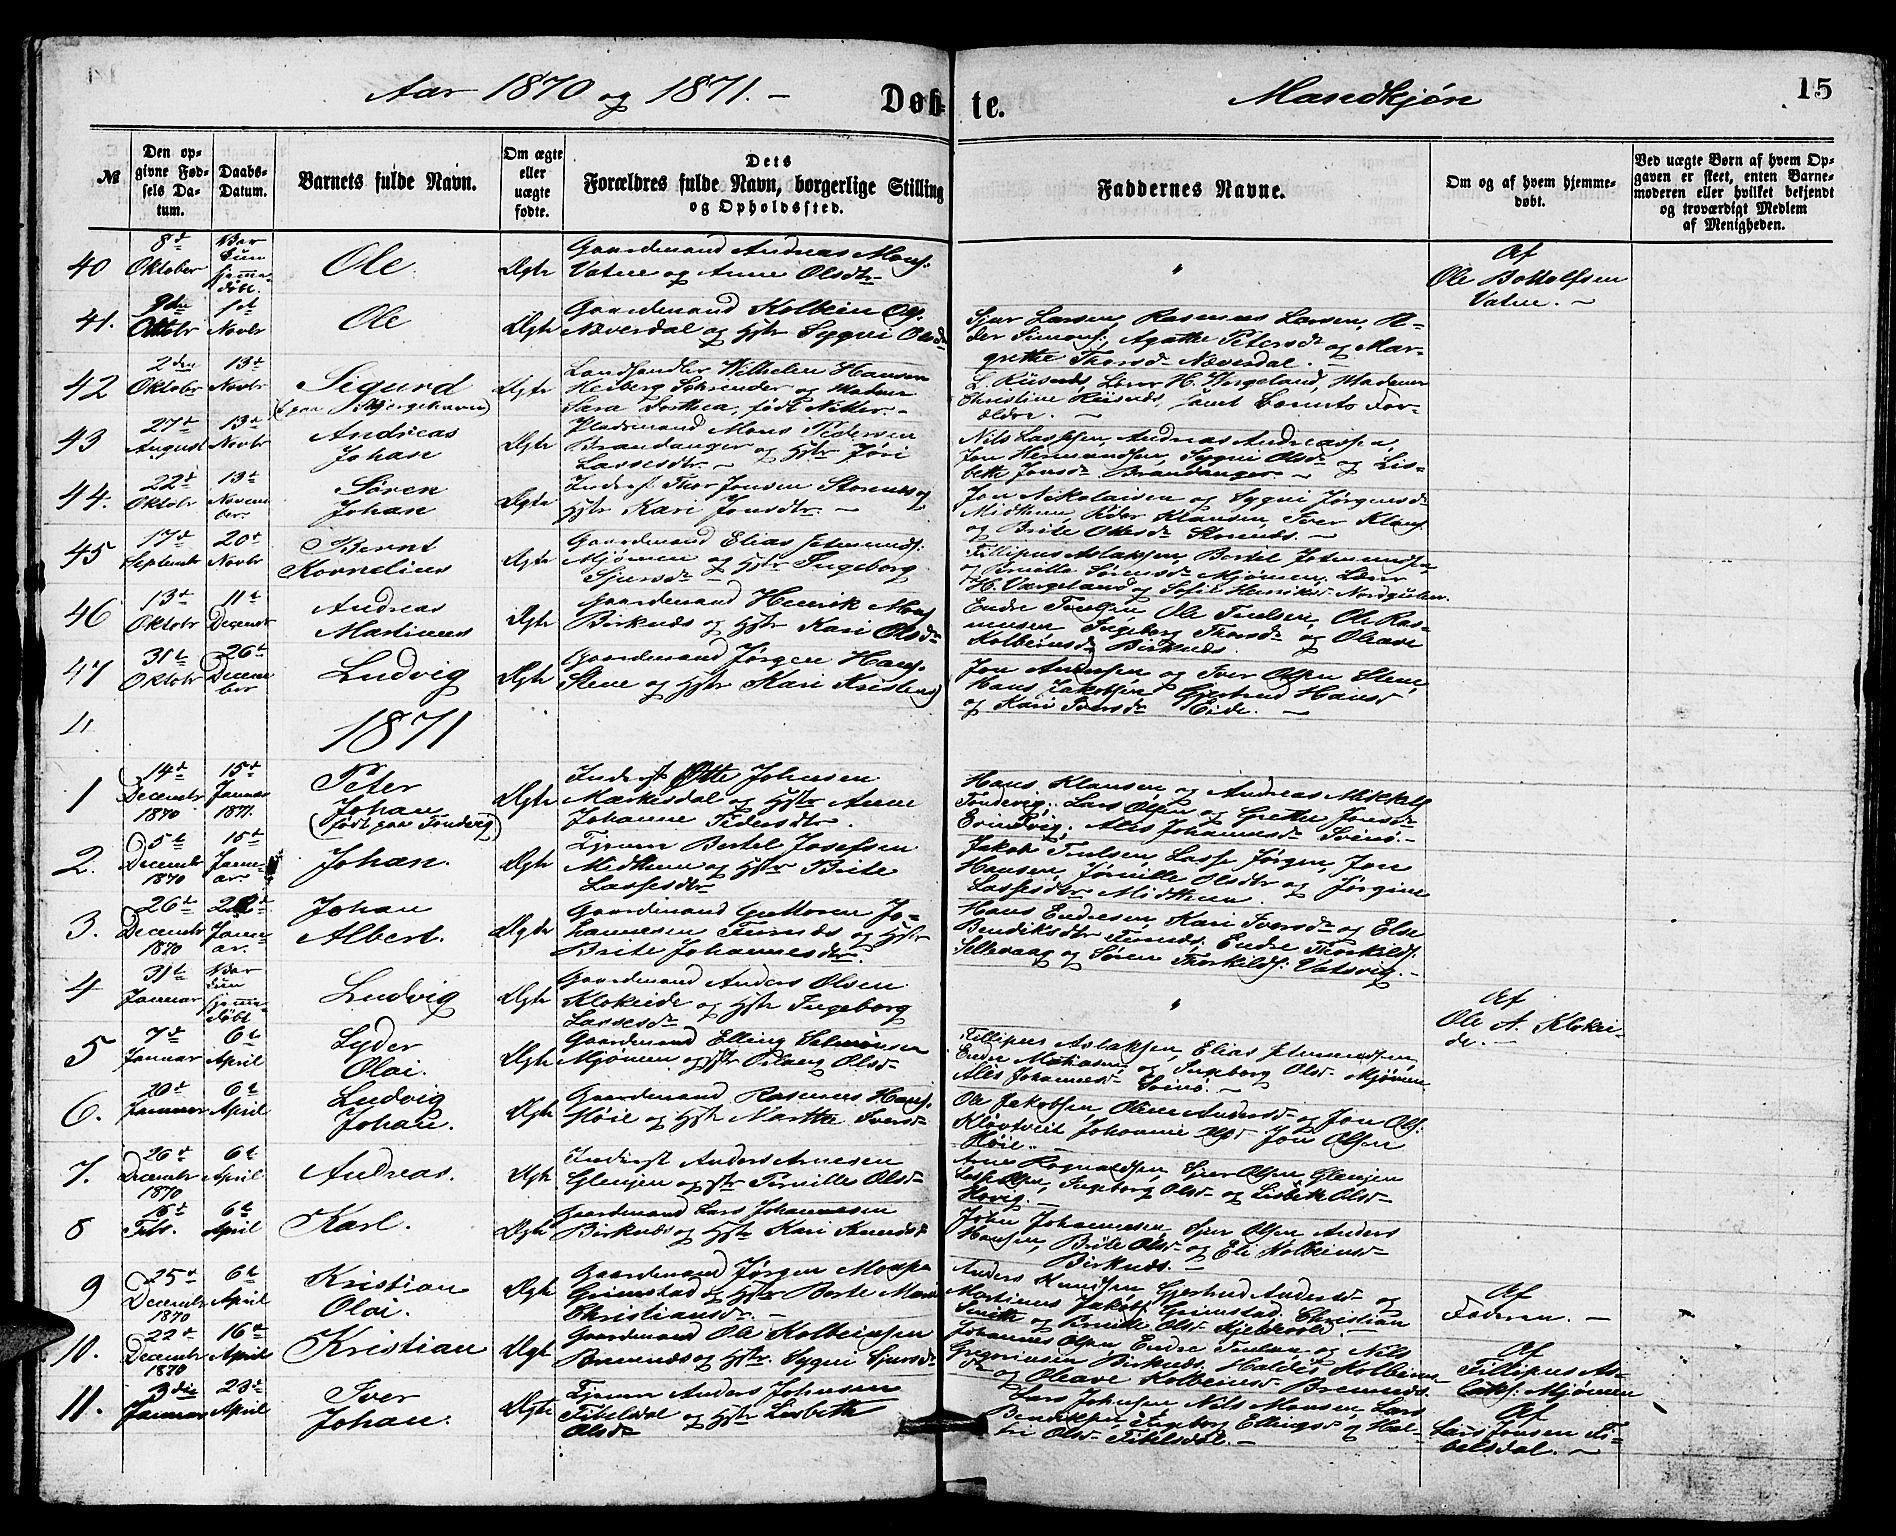 Aar 1870 og 1871. –
Døb-
te.
Mandkjøn
15
№
Den op-
givne Fød-
sels Da-
tum.
Daabs-
Datum.
Barnets fulde Navn.
Om ægte
eller
uægte
fødte.
Dets
Forældres fulde Navn, borgerlige Stilling
og Opholdssted.
Faddernes Navne.
Om og af hvem hjemme-
døbt.
Ved uægte Børn af hvem Op-
gaven er skeet, enten Barne-
moderen eller hvilket bekjendt
og troværdigt Medlem
af Menigheden.
40
8de
Oktober
Bar
kun
hjemme-
døbt.
Ole.
Ægte
Gaardmand Andreas Mons.
Vatne og Anne Olsdtr
"
Af
Ole Bottolfsen
Vatne. –
41.
9de
Oktobr
1st
Novbr
Ole
Ægte
Gaardmand Kolbein Ols.
Næverdal og Hstr Sygni Olsdr
Sjur Larsen, Rasmus Larsen, A-
der Simons, Agathe Petersdr og Mar-
grethe Thorsdr Næverdal. –
42
2den
Oktobr
13de
Novbr
Sigurd
Ægte
Landhandler Wilhelm Hansen
Heiberg Schrøder og Madam
Sara Dorthea, født Nitter –
H. Vergeland, Madame
Christine Riisnæs, samt Barnets For-
ældre. –
43
27de
August
13de
Novbr
Andreas
Johan
Ægte
Pladsmand Mons Pedersen
Brandanger og Hstr Jøri
Lassesdtr –
Nils Lassesen, Andreas Andreass.,
Jon Hermundsen, Sygni Olsdr og Lis-
beth Jonsdr Brandanger. –
44.
22de
Oktobr
13de
Novem-
ber
Søren
Johan
Ægte
Inderst Thor Jonsen Storenæs og
Hstr Kari Jonsdtr. –
Jon Nikolaisen og Sygni Jørgensdr
Midtbøen, Peder Klausen, Iver Klaus.
og Brite Olsdr Storenæs. –
45
17de
Septembr
20de
Novbr
Bernt
Kornelius
Ægte
Gaardmand Elias Salmunds.
Mjømen og Hstr Ingeborg
Sjursdr
Fillipus Aslaksen, Bertel Salmunds.
og Pernille Sørensdr Mjømen,
H. Vergeland og Sofie Henriksdr Nordgulen.
46
13de
Oktobr
11te
Decembr
Andreas
Martinus
Ægte
Gaardmand Henrik Mons.
Birknæs og Hstr Kari Olsdr
Endre Truelsen, Ole Truelsen, Ole Ras-
mussen, Ingeborg Thorsdr og Oleave
Kolbeinsdr Birknæs.
47
31te
Oktobr
26de
Decem-
ber
Ludvig
Ægte
Gaardmand Jørgen Hans.
Stene og Hstr Kari Kristensd
Jon Andersen og Iver Olsen Stene,
Hans Jakobsen, Gjertrud Hansd
og Kari Iversdr Eide. –
1871
1
14de
Decembr
1870
15de
Januar
1871.
Peter
Johan
(født paa Tondevig)
Ægte
Inderst Otte Johnsen
Mærkesdal og Hstr Anne
Johanne Pedersdtr.
Hans Klausen og Andreas Mikkels.
Tondevig, Lars Olsen og Grethe Jonsdr
Evindvig, Alis Johannesdr Svinø. –
2.
5te
Decembr
1870
15de
Janu-
ar
Johan.
Ægte
Tyrum Bertel Josefsen
Midtbøen og Hstr Brite
Lassesdtr
Jakob Truelsen, Lasse Jørgen, Jon
Hansen, Jørnille Olsdtr og Jørgine
Lassesdtr Midtbøen. –
3.
26de
Decembr
1870
22de
Janu-
ar.
Johan
Albert.
Ægte
Gaardmand Guttorm Jo-
hannesen Furenæs og Hstr
Brite Johannesdtr.
Hans Endresen, Kari Iversdr og Else
Bendiksdtr Furenæs, Endre Thorkilds.
Sellevaag og Søren Thorkilds. Vatsvig. –
4
31te
Januar
Bar
kun
hjemme-
døbt
Ludvig
Ægte
Gaardmand Anders Olsen
Klokeide og Hstr Ingeborg
Lassesdr
"
Af
Ole A. Klokei-
de. –
5
7de
Januar
6te
April
Lyder
Olai.
Ægte
Gaardmand Elling Salmonsen
Mjømen og Hstr Olsdr
Fillipus Aslaksen, Elias Salmundsen,
Endre Mathiasen og Ingeborg Olsdr Mjømen.
Alis Johannesdr Svinø. –
6.
20de
Januar
6te
April
Ludvig
Johan.
Ægte
Gaardmand Rasmus Hans.
Høie og Hstr Marthe Iversdr
Ole Jakobsen, Oline Andersdr og Jon Ols.
Kløvtveit, Johanne Olsd, Jon Olsen
Høie. –
7.
26de
Decembr
1870
6te
April
Andreas.
Ægte
Inderst Anders Arnesen
Glenjen og Hstr Pernille Olsdr
Arne Rognaldsen, Sjur Olsen Glenjen
Olsen, Ingeborg Olsdr og Lisbeth Olsdr
Hovig. –
8
15de
Febr.
6te
April
Karl.
Ægte
Gaardmand Lars Johannesen
Birknæs og Hstr Kari Knudsdr
John Johannesen, Sjur Olsen, Anders
Hansen, Brite Olsdr og Eli Kolbeinsdr
Birknæs. –
9
25de
Decembr
1870
6te
April
Kristian
Olai.
Ægte
Gaardmand Jørgen Monsen
Grimstad og Hstr Berte Marie
Christiansdr –
Anders Knudsen, Gjertrud Andersdr og
Martinus Jakobs. Grimstad, Christian
Smith og Pernille Olsdr Kjeldevold. –
Af
Faderen. –
10.
22de
Decembr
1870
16de
April
Kristian
Ægte
Gaardmand Ole Kolbeinsen
Bremnæs og Hstr Sygni Sjursdr
Johannes Olsen, Endre Truelsen og Nils
Gregoriusen Birknæs, Kolbeins-
dr og Oleave Kolbeinsdr Bremnæs.
Af
Fillipus As-
laks. Mjømen
11.
3die
Januar
23de
April
Iver
Johan.
Ægte
Tyrum Anders Johnsen
Tibelsdal og Hstr Lisbeth
Olsdr
Lars Johnsen, Nils Monsen, Lars
Bendiksen, Ingeborg Ellingsdr og
Olsdr Tibelsdal. –
Af
Lars Jonsen Ti-
belsdal. –